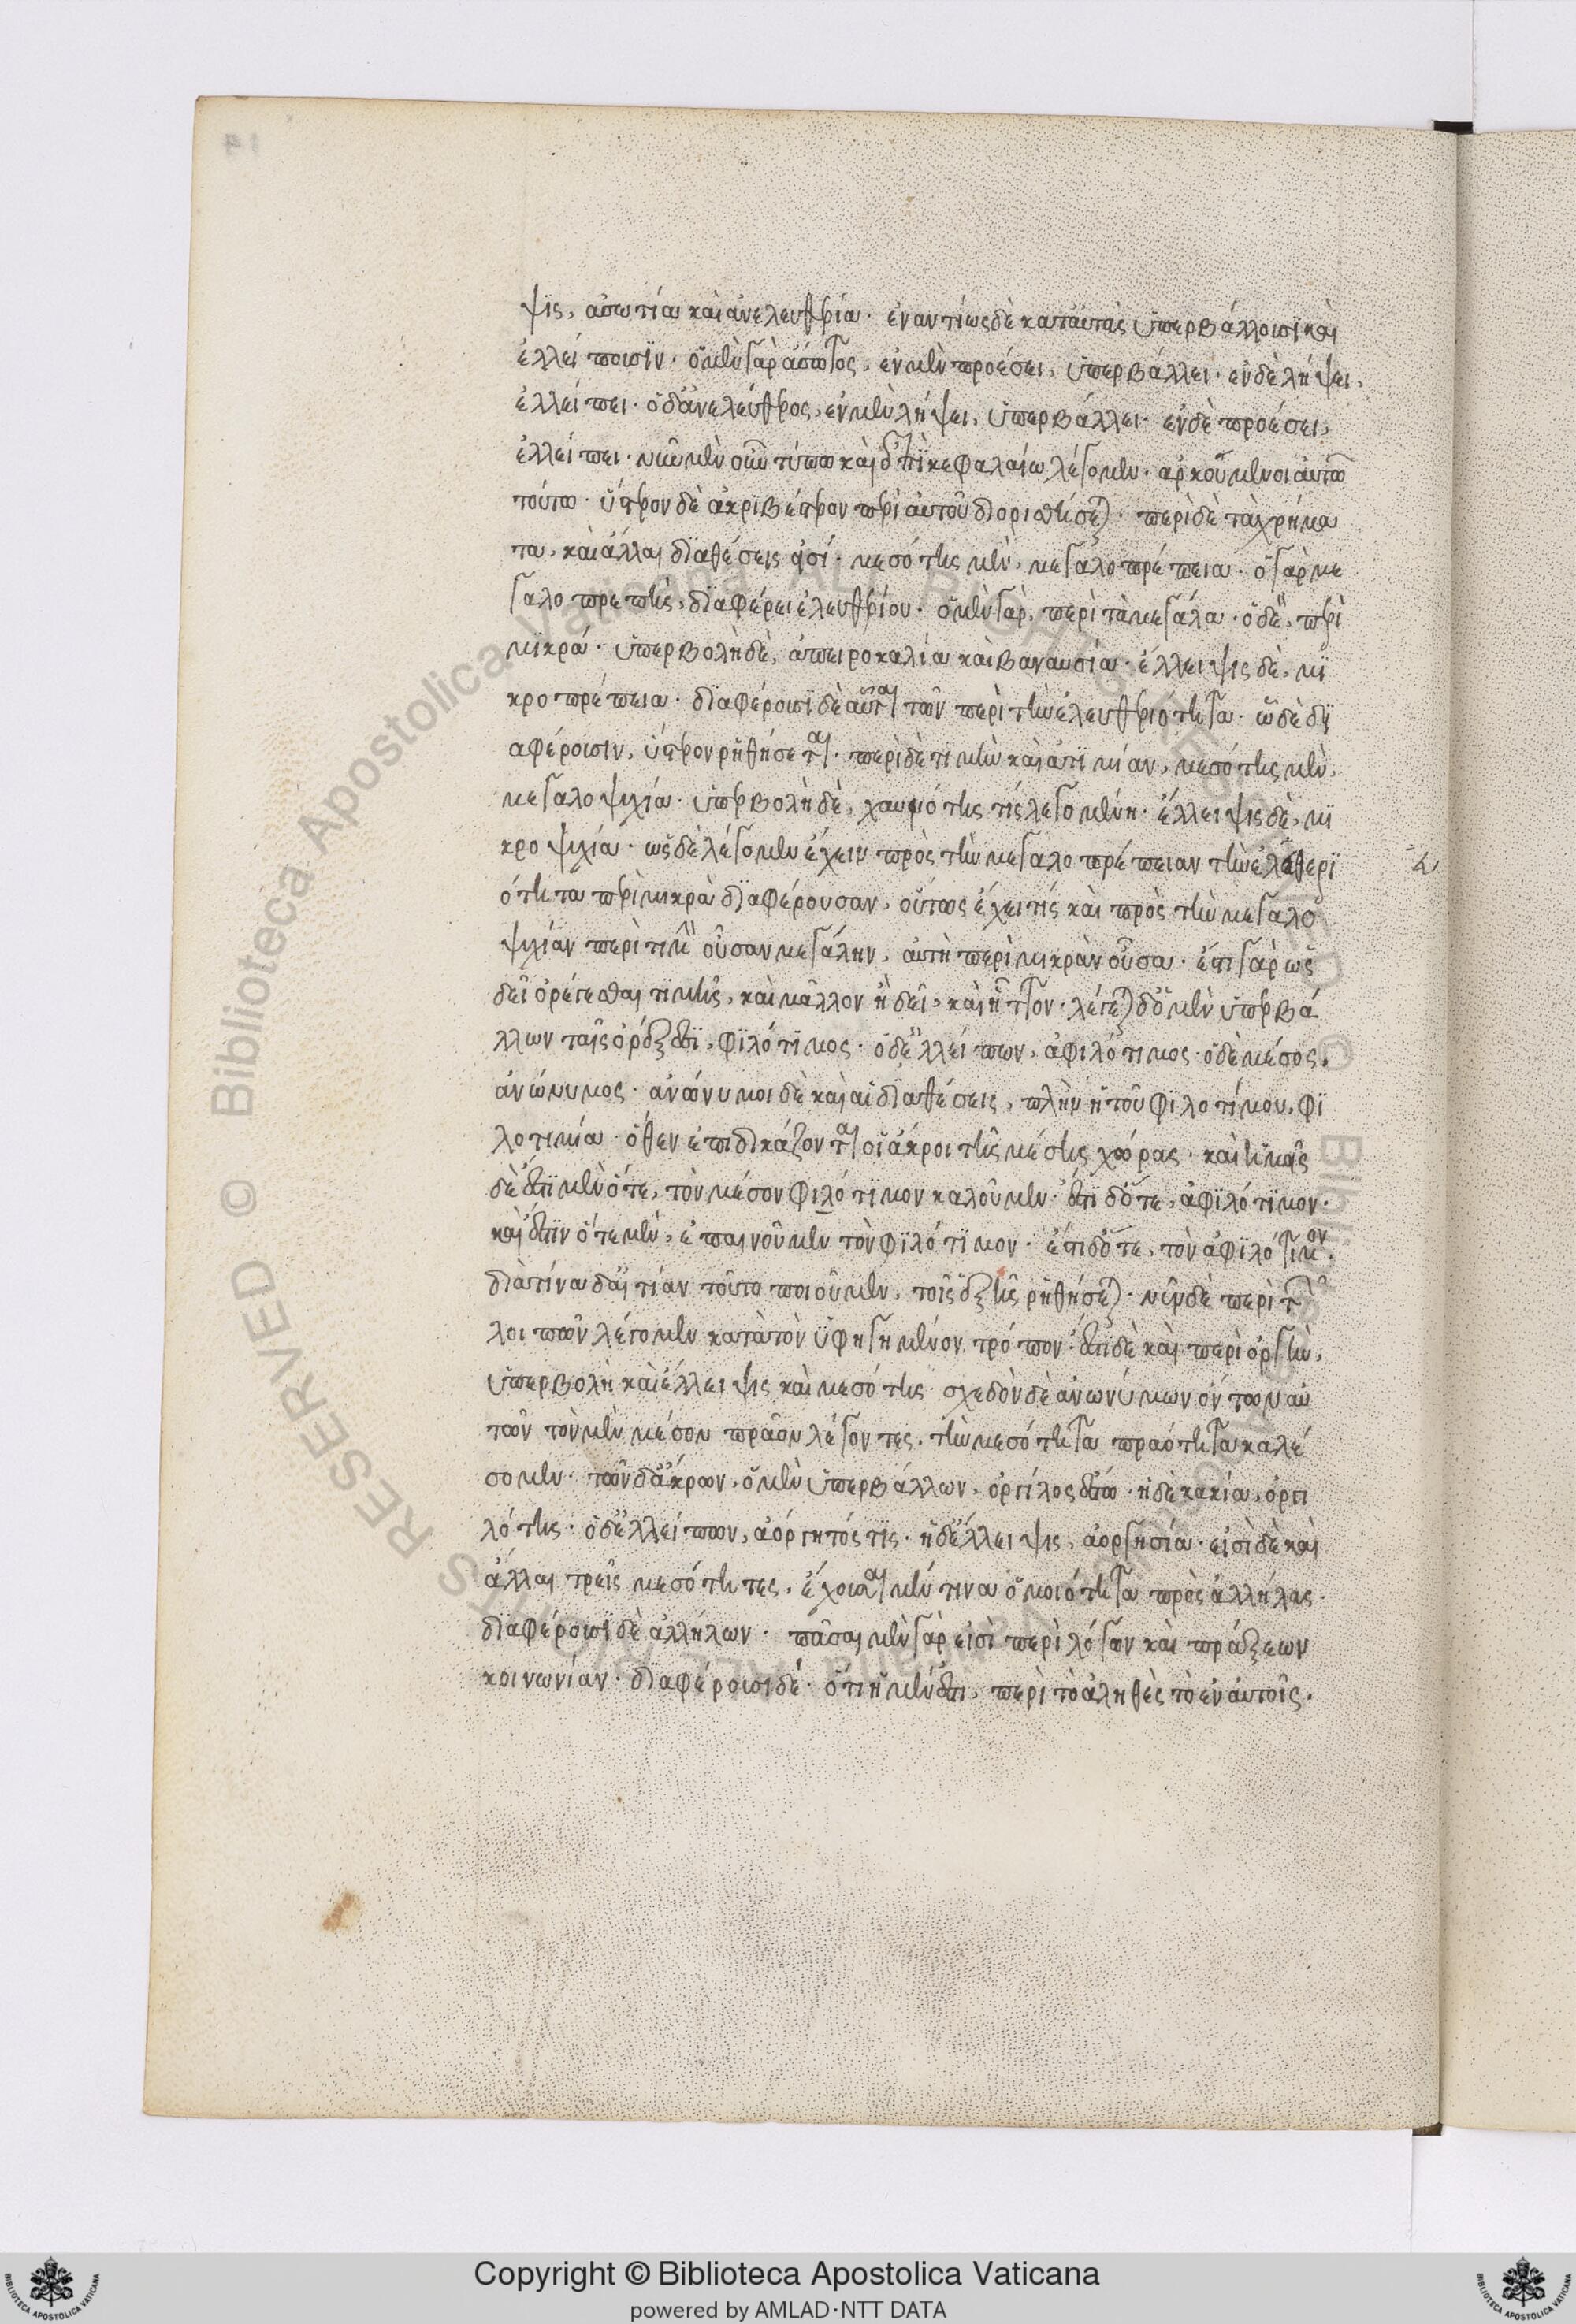 ψις, ἀσωτία καὶ ἀνελευθερία· ἐναντίως δὲ κατ' αὐτὰς ὑπερβάλλουσι καὶ
ἐλλείπουσιν· ὁ μὲν γὰρ ἄσωτος, ἐν μὲν προέσει, ὑπερβάλλει· ἐν δὲ λήψει,
ἐλλείπει· ὁ δ' ἀνελεύθερος, ἐν μὲν λήψει, ὑπερβάλλει· ἐν δὲ προέσει,
ἐλλείπει· νῦν μὲν οὖν τύπω καὶ ἐπὶ κεφαλαίω λέγομεν· ἀρκούμενοι αὐτῶ
τούτω· ὕστερον δὲ ἀκριβέστερον περὶ αὐτοῦ διορισθήσεται· περὶ δὲ τὰ χρήμα
τα, καὶ ἄλλαι διαθέσεις εἰσί· μεσότης μὲν, μεγαλοπρέπεια· ὁ γὰρ με
γαλοπρεπὴς, διαφέρει ἐλευθερίου· ὁ μὲν γὰρ, περὶ τὰ μεγάλα· ὁ δὲ, περὶ
μικρά· ὑπερβολὴ δὲ, ἀπειροκαλία καὶ βαναυσία· ἔλλειψις δὲ, μι
κροπρέπεια· διαφέρουσι δὲ αὗται τῶν περὶ τὴν ἐλευθεριότητα· ὧ δὲ δι
αφέρουσιν, ὕστερον ῥηθήσεται· περὶ δὲ τιμὴν καὶ ἀτιμίαν, μεσότης μὲν,
μεγαλοψυχία· ὑπερβολὴ δὲ, χαυνότης τίς λεγομένη· ἔλλειψις δὲ, μι
κροψυχία· ὡς δὲ λέγομεν ἔχειν πρὸς τὴν μεγαλοπρέπειαν τὴν ἐλευθερι
ότητα περὶ μικρὰ διαφέρουσαν, οὕτως ἔχει τίς καὶ πρὸς τὴν μεγαλο
ψυχίαν περὶ τιμὴν οὖσαν μεγάλην, αὐτὴ περὶ μικρὰν οὖσα· ἔστι γὰρ ὡς
δεῖ ὀρέγεσθαι τιμῆς, καὶ μᾶλλον ἢ δεῖ, καὶ ἧττον· λέγεται δ' ὁ μὲν ὑπερβά
λλων ταῖς ὀρέξεσι, φιλότιμος· ὁ δ' ἐλλείπων, ἀφιλότιμος· ὁ δὲ μέσος,
ἀνώνυμος· ἀνώνυμοι δὲ καὶ αἱ διαθέσεις, πλὴν ἡ τοῦ φιλοτίμου, φι
λοτιμία· ὅθεν ἐπιδικάζονται οἱ ἄκροι τῆς μέσης χώρας· καὶ ἡμεῖς
δὲ ἔστι μὲν ὅτε, τὸν μέσον φιλότιμον καλοῦμεν· ἔστι δ' ὅτε, ἀφιλότιμον·
καὶ ἔστιν ὅτε μὲν, ἐπαινοῦμεν τὸν φιλότιμον· ἔστι δ' ὅτε, τὸν ἀφιλότιμον·
διὰ τίνα δ' αἰτίαν τοῦτο ποιοῦμεν, τοῖς ἑξῆς ῥηθήσεται· νῦν δὲ περὶ τῶν
λοιπῶν λέγομεν κατὰ τὸν ὑφηγημένον τρόπον· ἔστι δὲ καὶ περὶ ὀργὴν,
ὑπερβολὴ καὶ ἔλλειψις καὶ μεσότης· σχεδὸν δὲ ἀνωνύμων ὄντων αὐ
τῶν τὸν μὲν μέσον πρᾶον λέγοντες, τὴν μεσότητα πραότητα καλέ
σομεν· τῶν δ' ἄκρων, ὁ μὲν ὑπερβάλλων, ὀργίλος ἔστω· ἡ δὲ κακία, ὀργι
λότης· ὁ δ' ἐλλείπων, ἀόργητός τις· ἡ δ' ἔλλειψις, ἀοργησία· εἰσὶ δὲ καὶ
ἄλλαι τρεῖς μεσότητες, ἔχουσαι μέν τινα ὁμοιότητα πρὸς ἀλλήλας·
διαφέρουσι δὲ ἀλλήλων· πᾶσαι μὲν γὰρ εἰσὶ περὶ λόγων καὶ πράξεων
κοινωνίαν· διαφέρουσι δέ· ὅτι ἡ μέν ἐστι, περὶ τὸ ἀληθὲς τὸ ἐν αὐτοῖς·
Copyright © Biblioteca Apostolica Vaticana
powered by AMLAD·NTT DATA